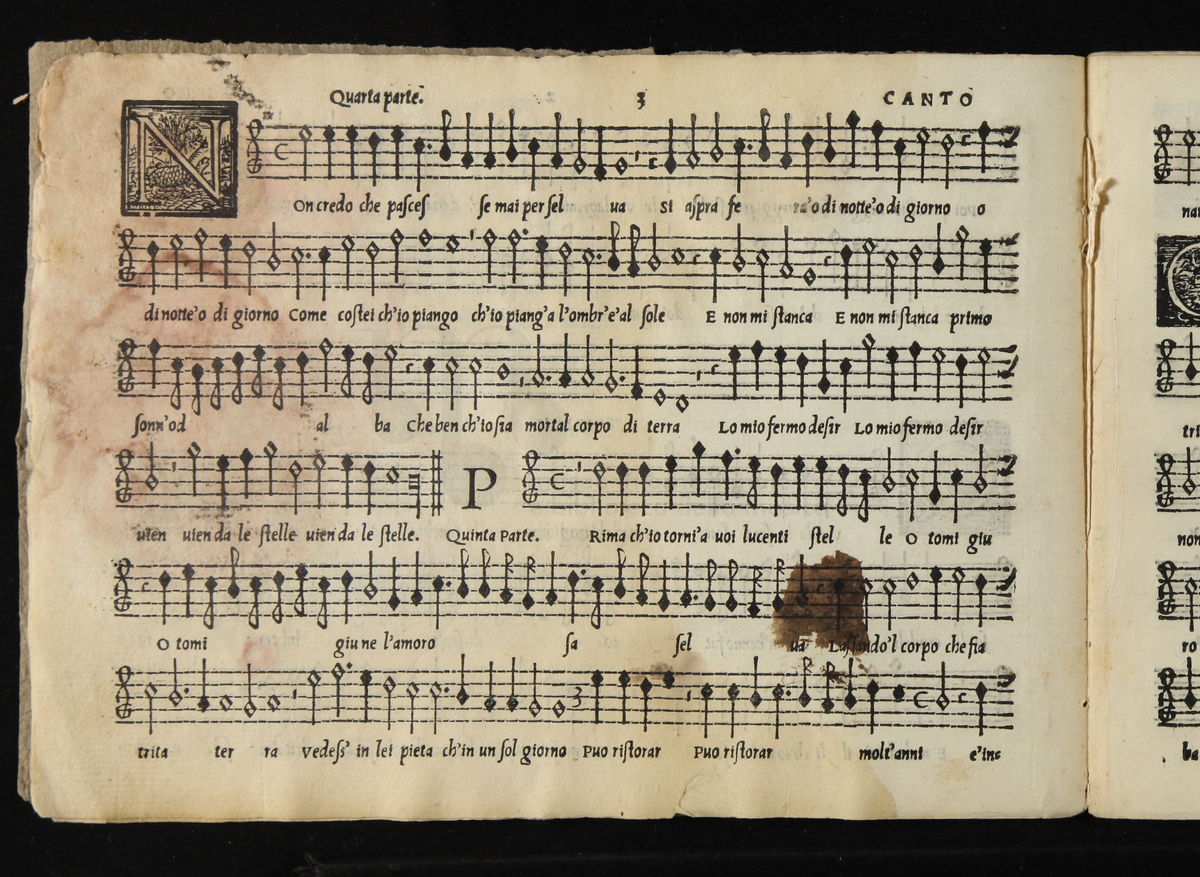 Quarta parte. 3 CANTO
N
On credo che pascess se mai per sel ua si aspra fe ra'o di notte'o di giorno o
di notte'o di giorno Come costei ch'io piango ch'io piang'a l'ombr'e'al sole E non mi stanca E non mi stanca primo
sonn'od al ba Che ben ch'io sia mortal corpo di terra Lo mio fermo desir Lo mio fermo desir
P
uien uien da le stelle uien da le stelle. Quinta Parte. Rima ch'io torni'a uoi lucenti stel le O tomi giu
O tomi giu ne l'amoro sa sel ua Lassando'l corpo che fia
trita ter ra vedess' in lei pieta ch'in un sol giorno Puo ristorar Puo ristorar molt'anni e'ins
nat
tri
non
ro
ba